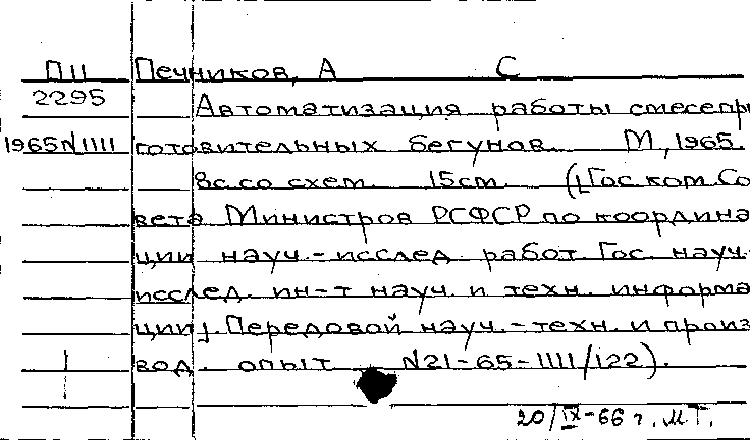 П11 Печников, А С
2295 Автоматизация работы смесепри
1965№1111 готовительных бегунов. М, 1965.
8с. со схем. 15см. (Гос. ком. Со
вета Министров РСФСР по координа
ции науч.-исслед. работ. Гос. науч.
исслед. ин-т науч. и техн. информа
ции). Передовой науч.-техн. и произ
вод. опыт №21-65-1111/122).
20/IX-66 г. М.Т.